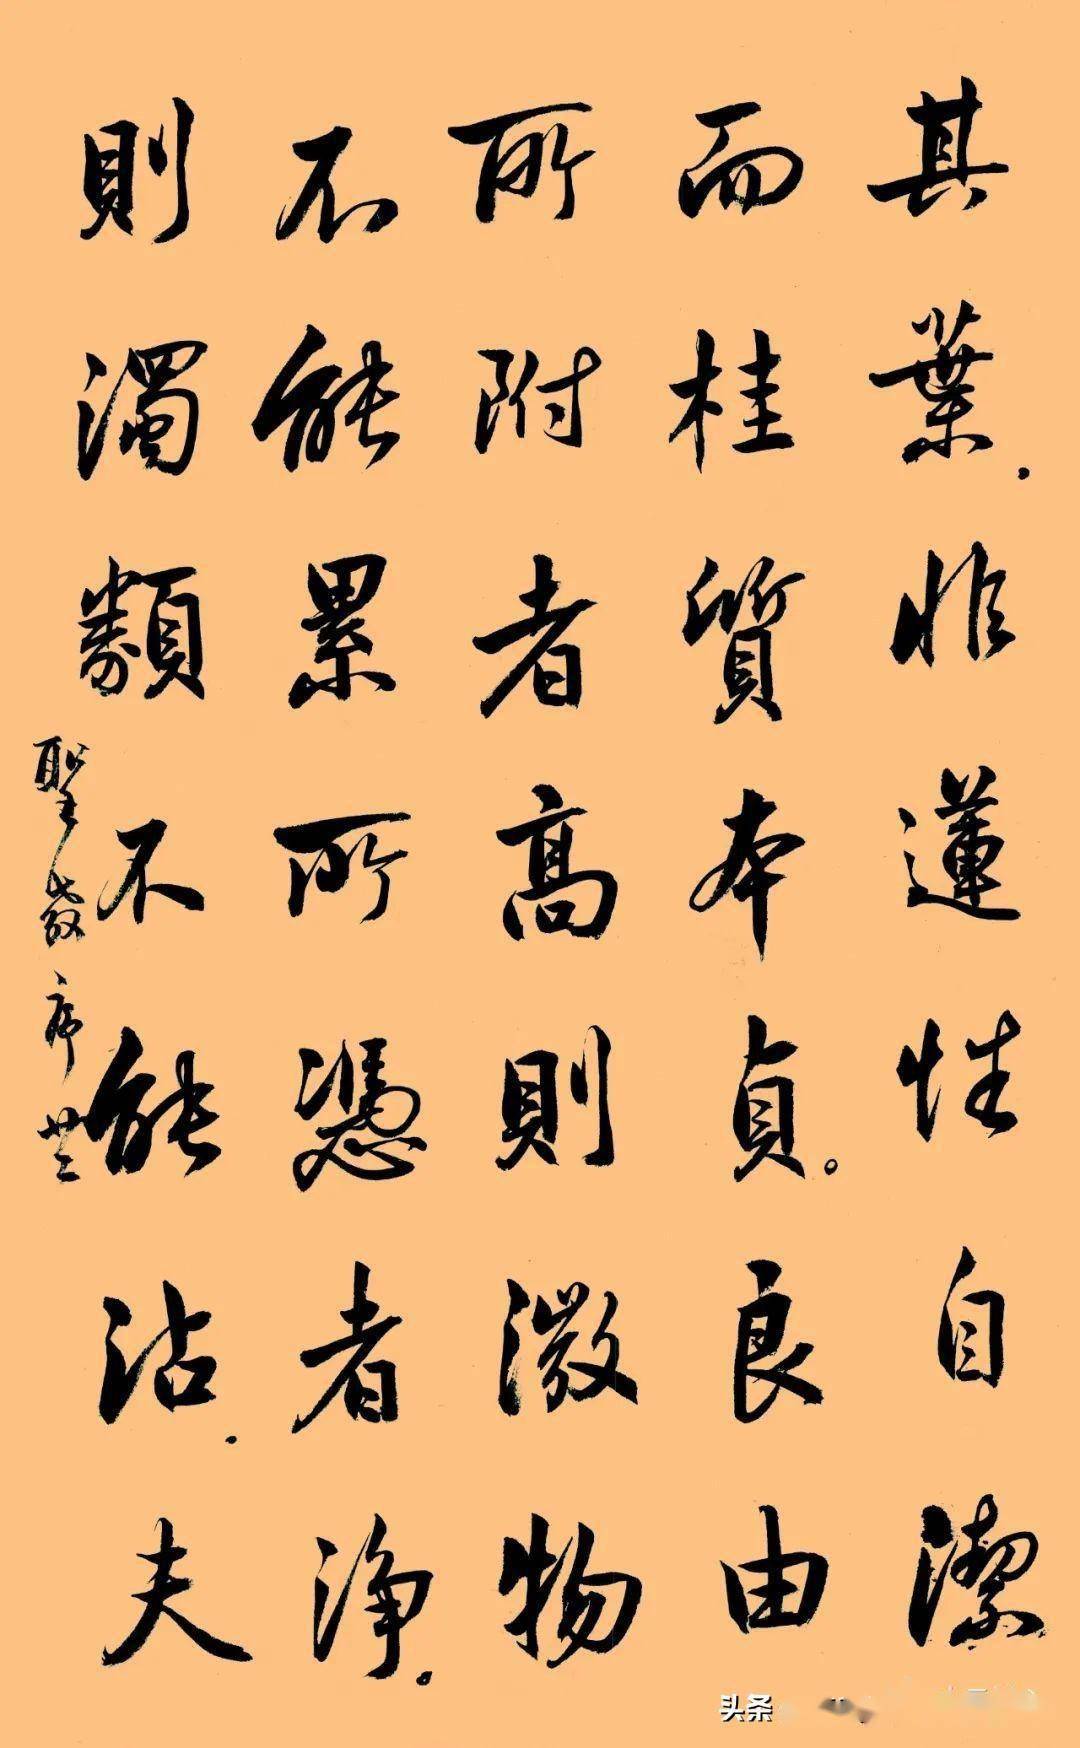 其葉.非蓮性自潔
而桂質本貞。良由
所附者高則微物
不能累所憑者淨。
則濁類不能沾.夫
聖教序廿二
头条